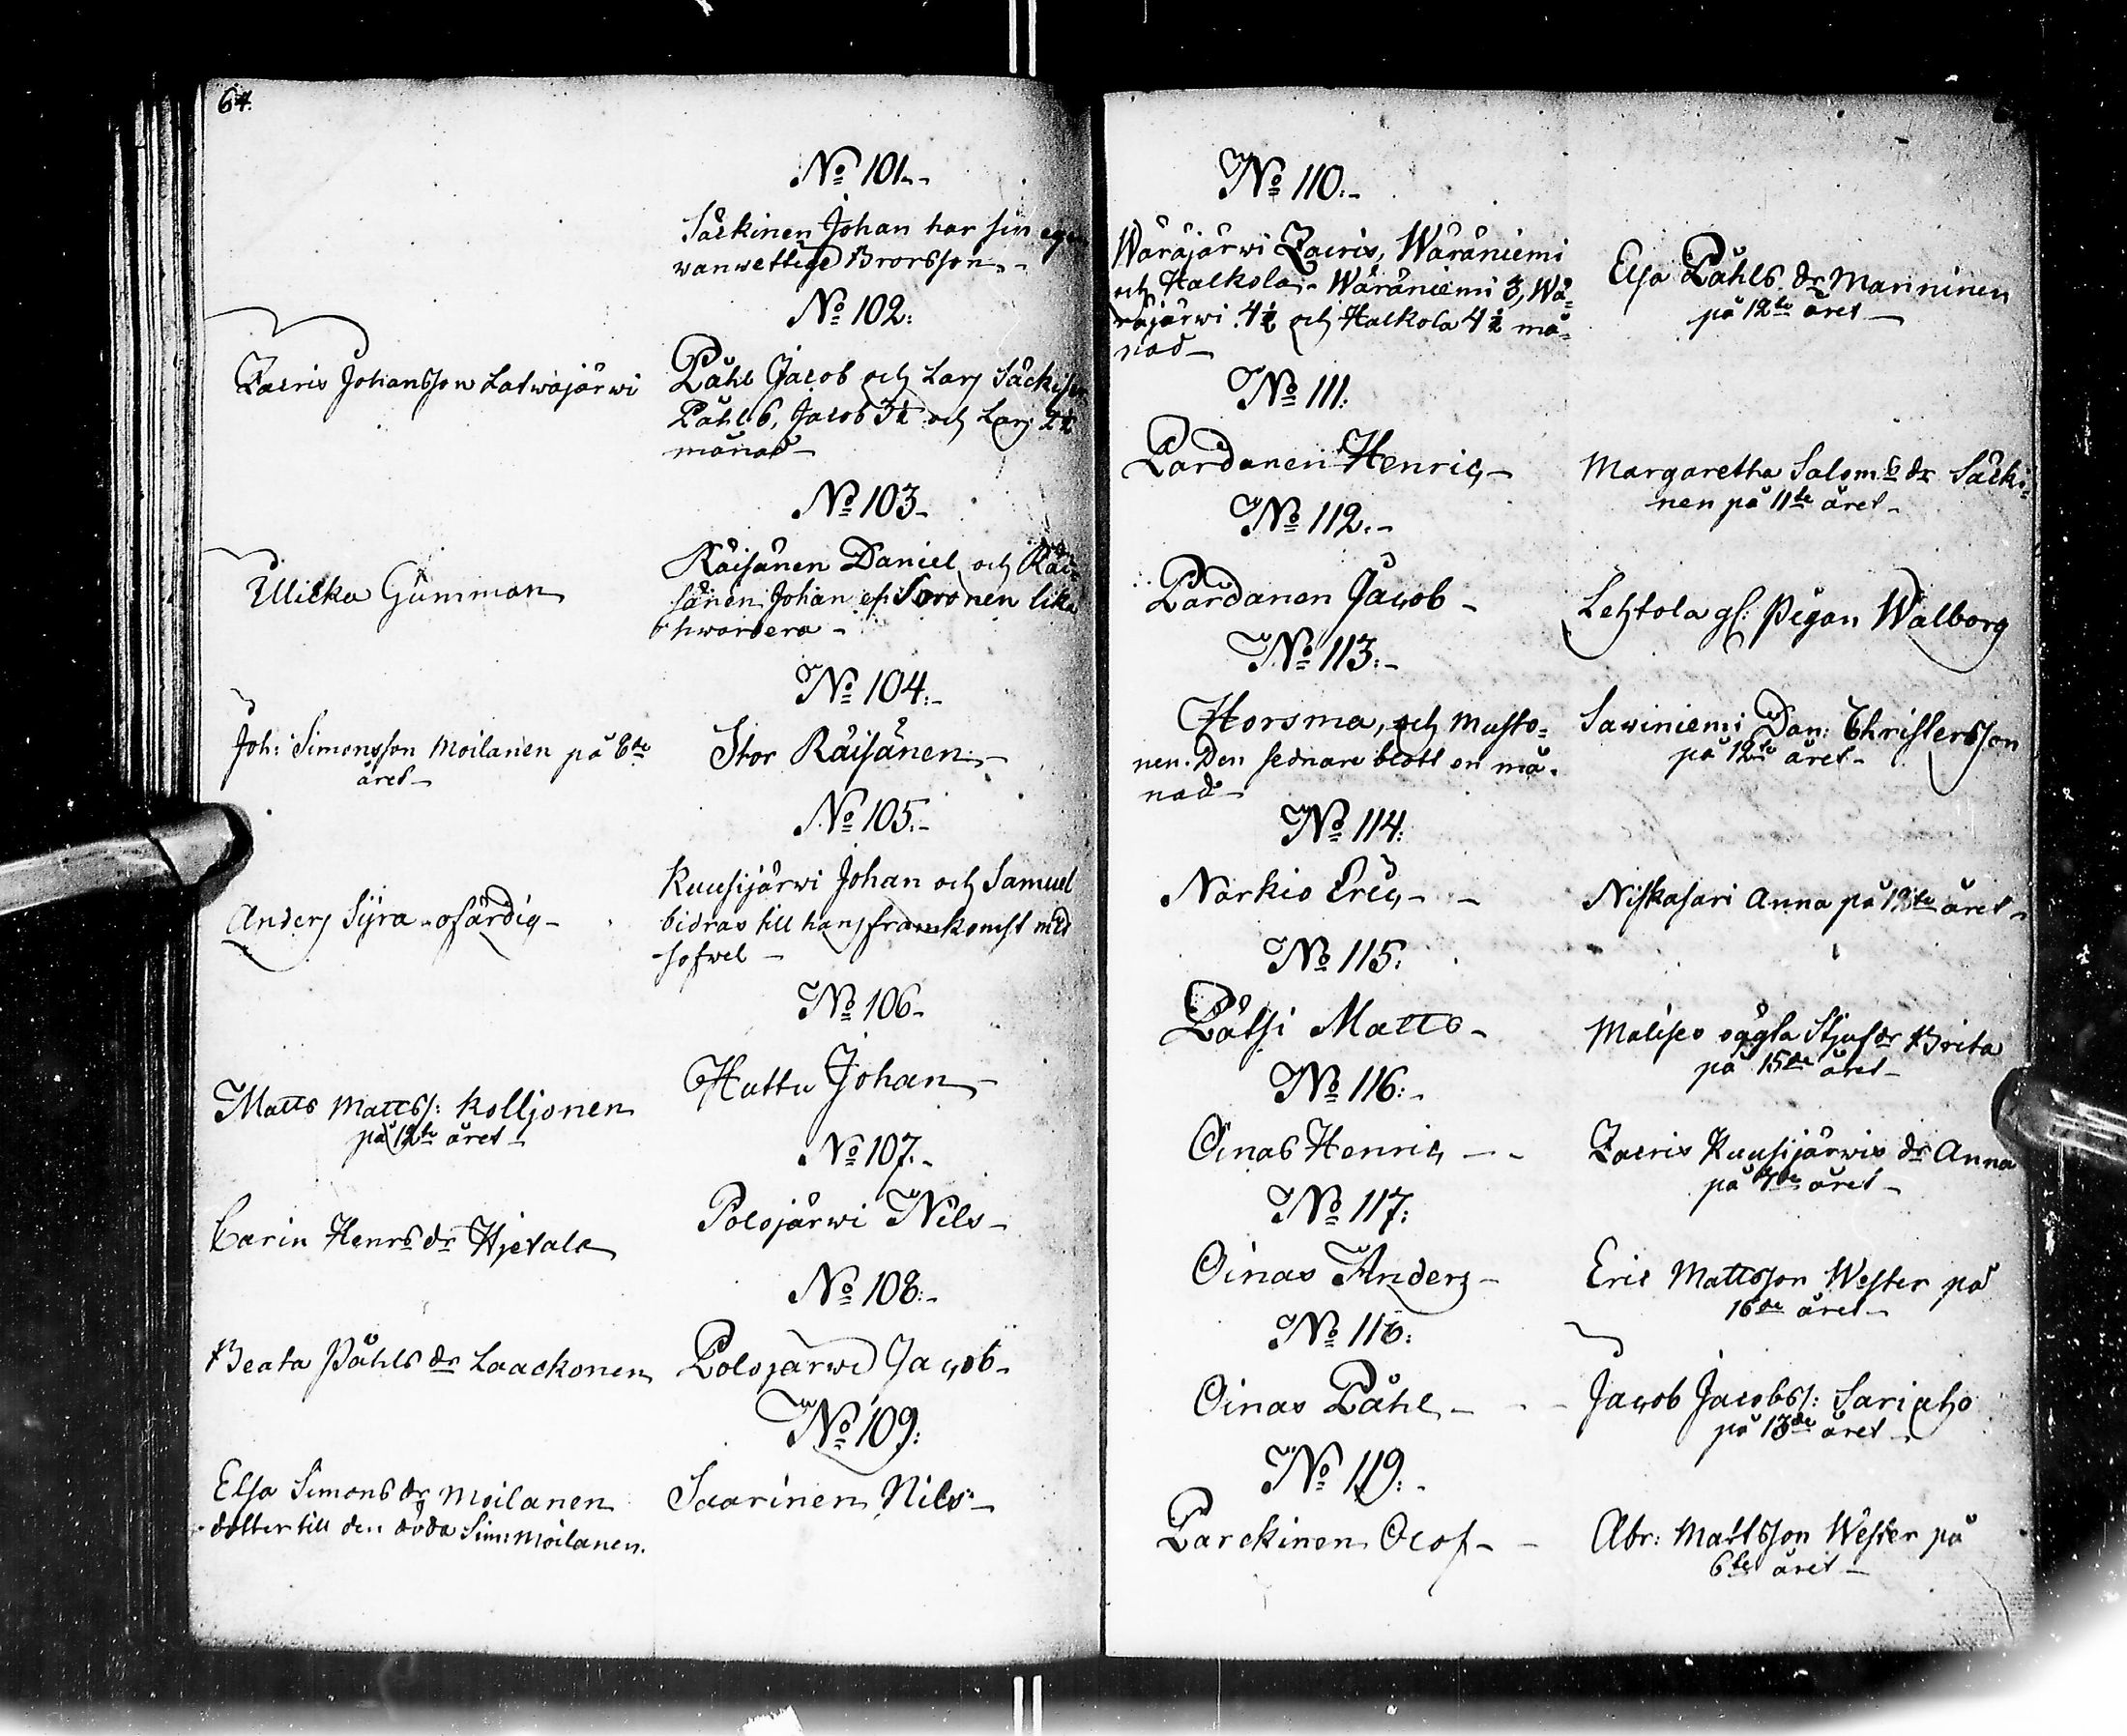 64.
No 101.-
Säckinen Johan har sin egen
wanwettige Brorsson.-
No 102:
Zacris Johansson Latwajärwi
Påhl Jacob och Lars Säckinen
Påhl 6, Jacob 3½ och Lars 2½
månad-
No 103-
Ullicka Gumman
Räisänen Daniel och Räi-
sänen Johan ef. Soronen lika
hwardera-
No 104:-
Joh: Simonsson Moilanen på 8de
året-
Stor Räisänen:-
No 105.-
Anders Syrä ofärdig-
Kuusijärwi Johan och Samuel
bidrar till hans framkomst med
sofwel-
No 106-
Matts Mattss: Kolljonen
på 12te året-
Huttu Johan-
No 107.-
Carin Henrs dr Hjetala
Polojärwi Nils-
No 108:-
Beata Påhls dr Laackonen
Polojärwi Jacob-
No 109:
Elsa Simons dr Moilanen
dotter till den döda Sim: Moilanen.
Saarinen Nils-
No 110:-
Wäräjärwi Zacris, Wäräniemi
och Halkola:- Wäräniemi 3, Wä-
räjärwi 4½ och Halkola 4½ må-
nad-
Elsa Påhls dr Manninen
på 12te året-
No 111:
Pardanen Henric-
Margaretha Salom:s dr Säcki-
nen på 11te året-
No 112.-
Pardanen Jacob-
Lehtola gl: Pigan Walborg
No 113:-
Horsma, och Musto-
nen. Den sednare blott en må-
nad-
Sawiniemi Dan: Christersson
på 12te året-
No 114:
Narkio Eric--
Niskasari Anna på 13de året-
No 115:
Pätsi Matts-
Malises oägta Stjufdr Brita
på 15de året-
No 116:-
Oinas Henric--
Zacris Kuusijärwis dr Anna
på 7de året-
No 117:
Oinas Anders-
Eric Mattsson Wester på
16de året-
No 118:
Oinas Påhl---
Jacob Jacobss: Sariaho
på 13de året-
No 119:-
Parckinen Olof--
Abr: Mattsson Wester på
6te året-